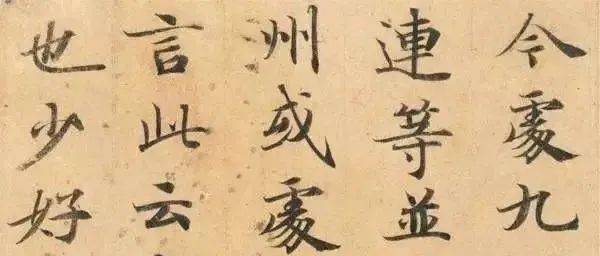 令處九
連等並
州或處
言此云
也少好